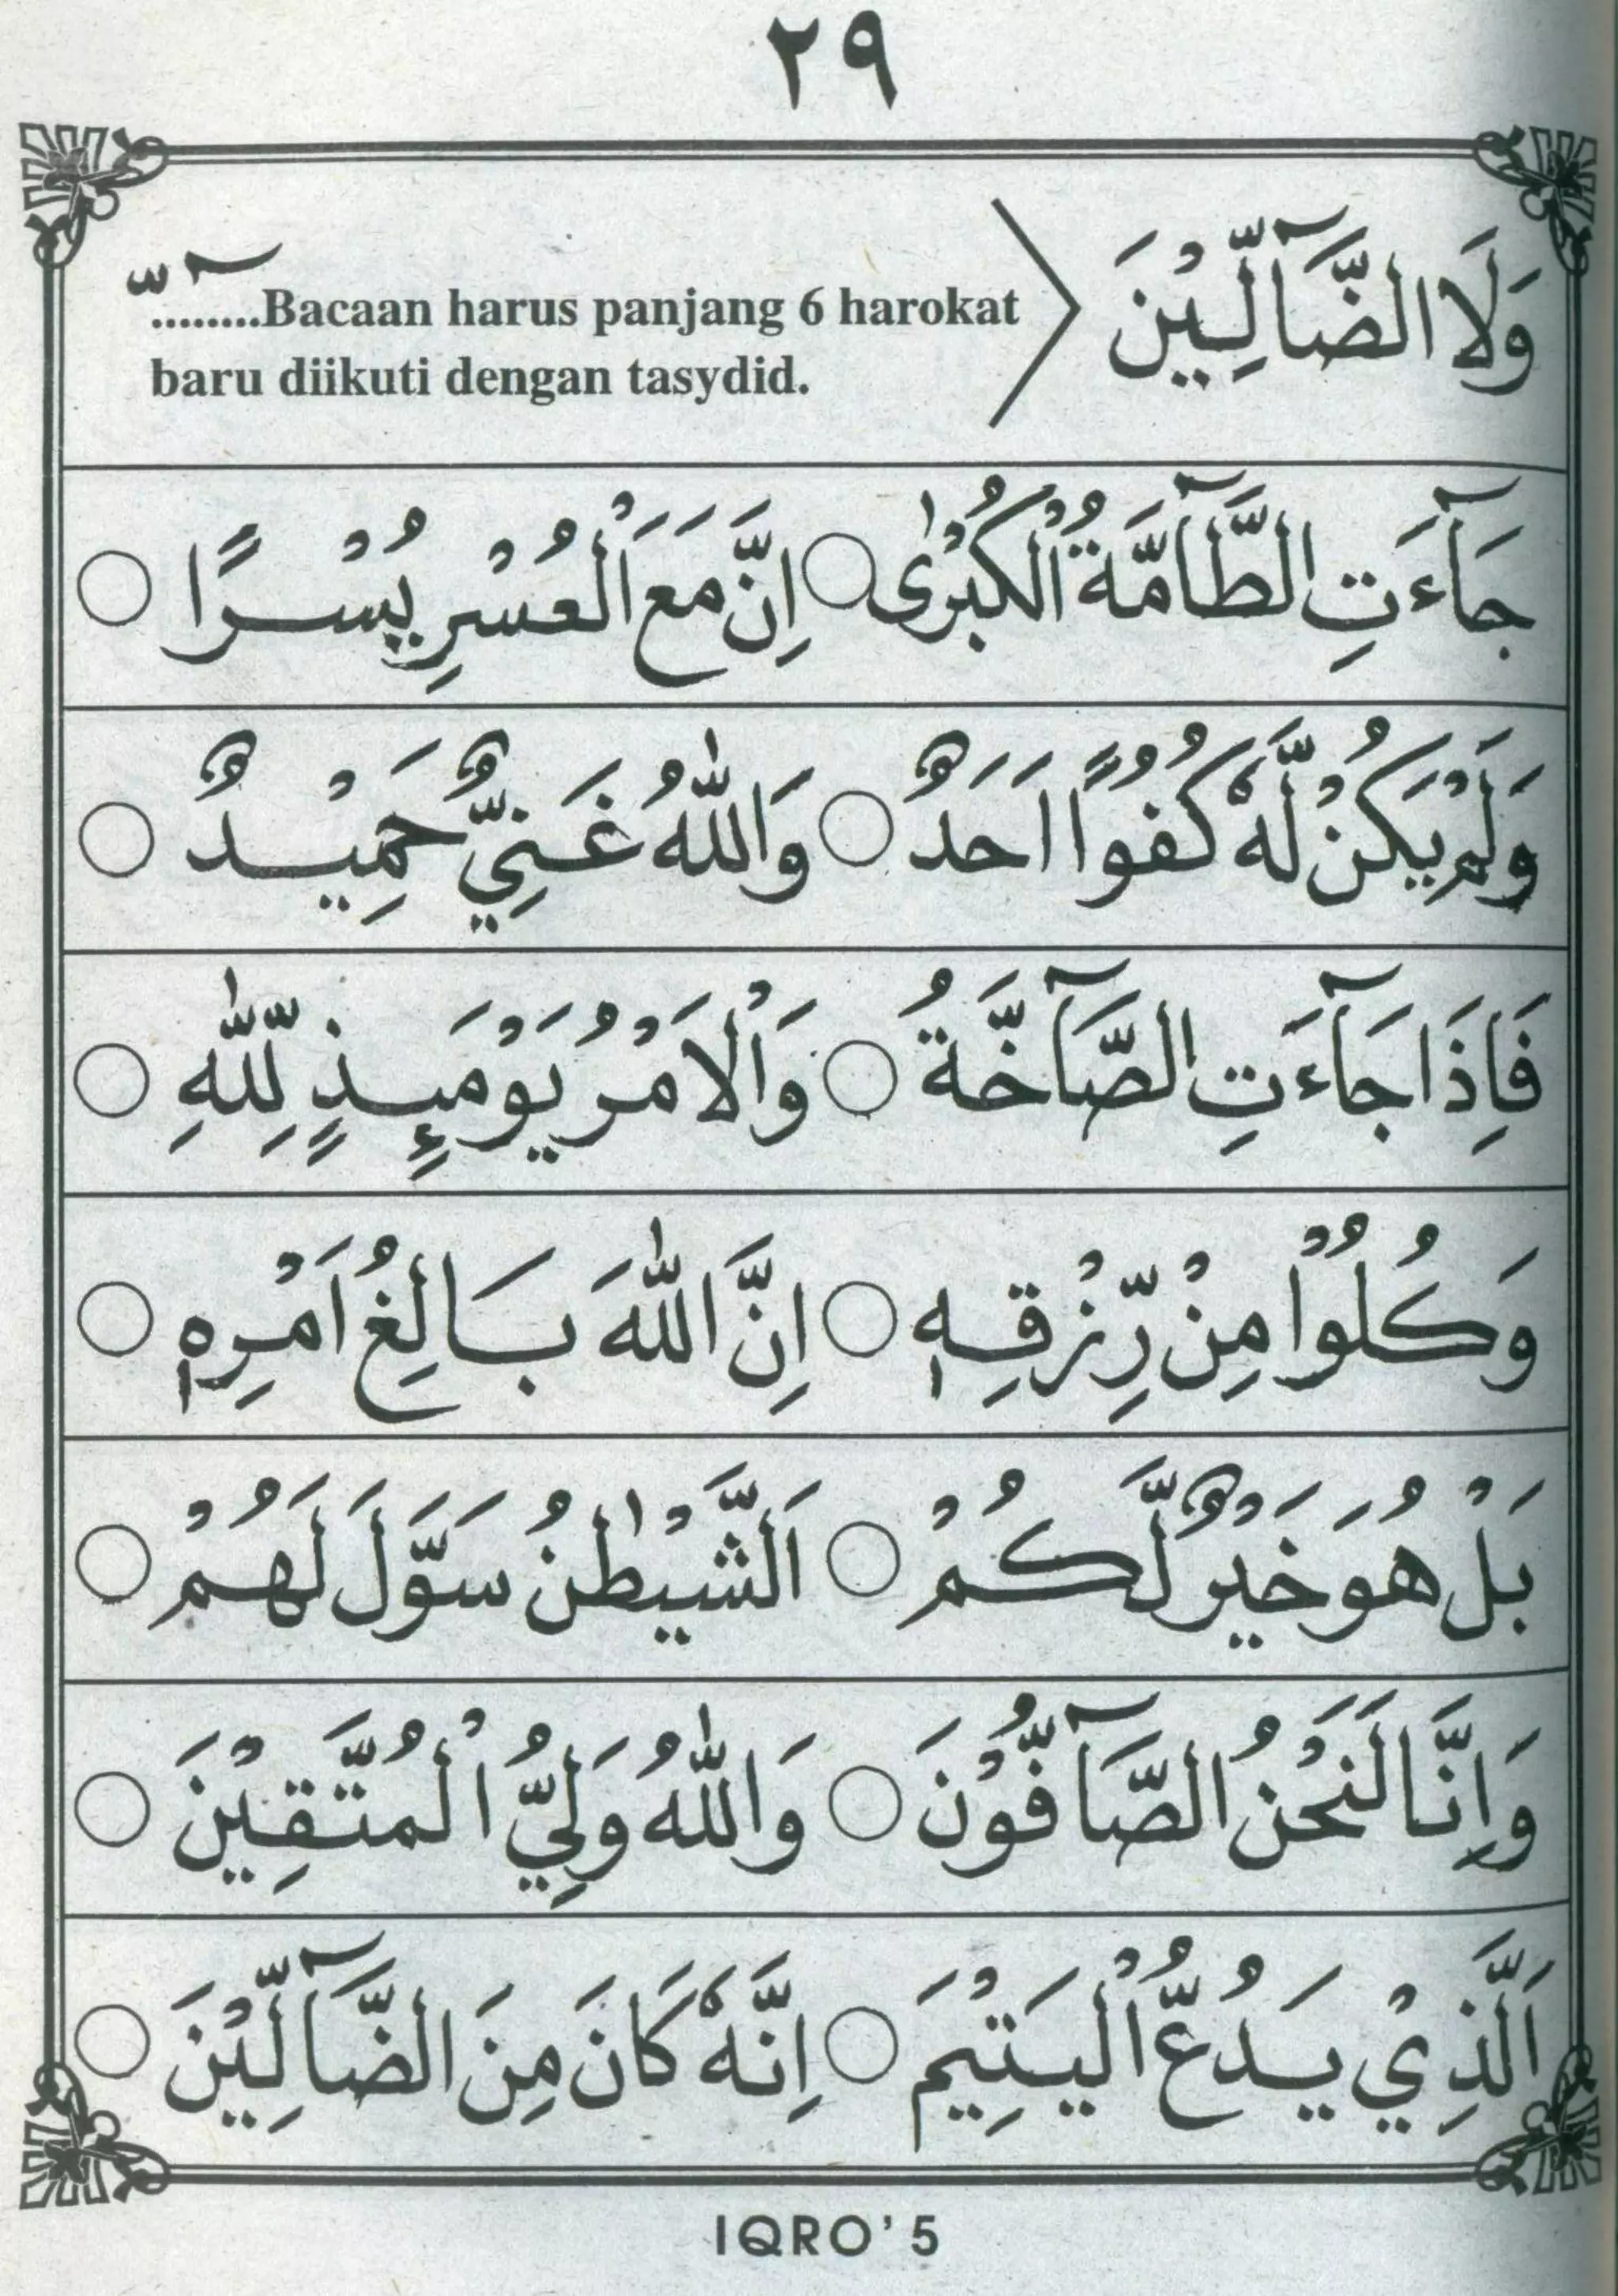 ٢٩
وَلَا الضَّآلِّيْنَ
........Bacaan harus panjang 6 harokat
baru diikuti dengan tasydid.
جَآءَتِ الطَّآمَّةُ الْكُبْرٰى ○ اِنَّ مَعَ الْعُسْرِ يُسْرًا ○
وَلَمْ يَكُنْ لَّهٗ كُفُوًا اَحَدٌ ○ وَاللّٰهُ غَنِيٌّ حَمِيْدٌ ○
فَاِذَا جَآءَتِ الصَّآخَّةُ ○ وَالْاَمْرُ يَوْمَىِٕذٍ لِّلّٰهِ ○
وَكُلُوْا مِنْ رِّزْقِهٖ ○ اِنَّ اللّٰهَ بَالِغُ اَمْرِهٖ ○
بَلْ هُوَ خَيْرٌ لَّكُمْ ○ اَلشَّيْطٰنُ سَوَّلَ لَهُمْ ○
وَاِنَّا لَنَحْنُ الصَّآفُّوْنَ ○ وَاللّٰهُ وَلِيُّ الْمُتَّقِيْنَ ○
اَلَّذِيْ يَدُعُّ الْيَتِيْمَ ○ اِنَّهٗ كَانَ مِنَ الضَّآلِّيْنَ ○
IQRO’ 5